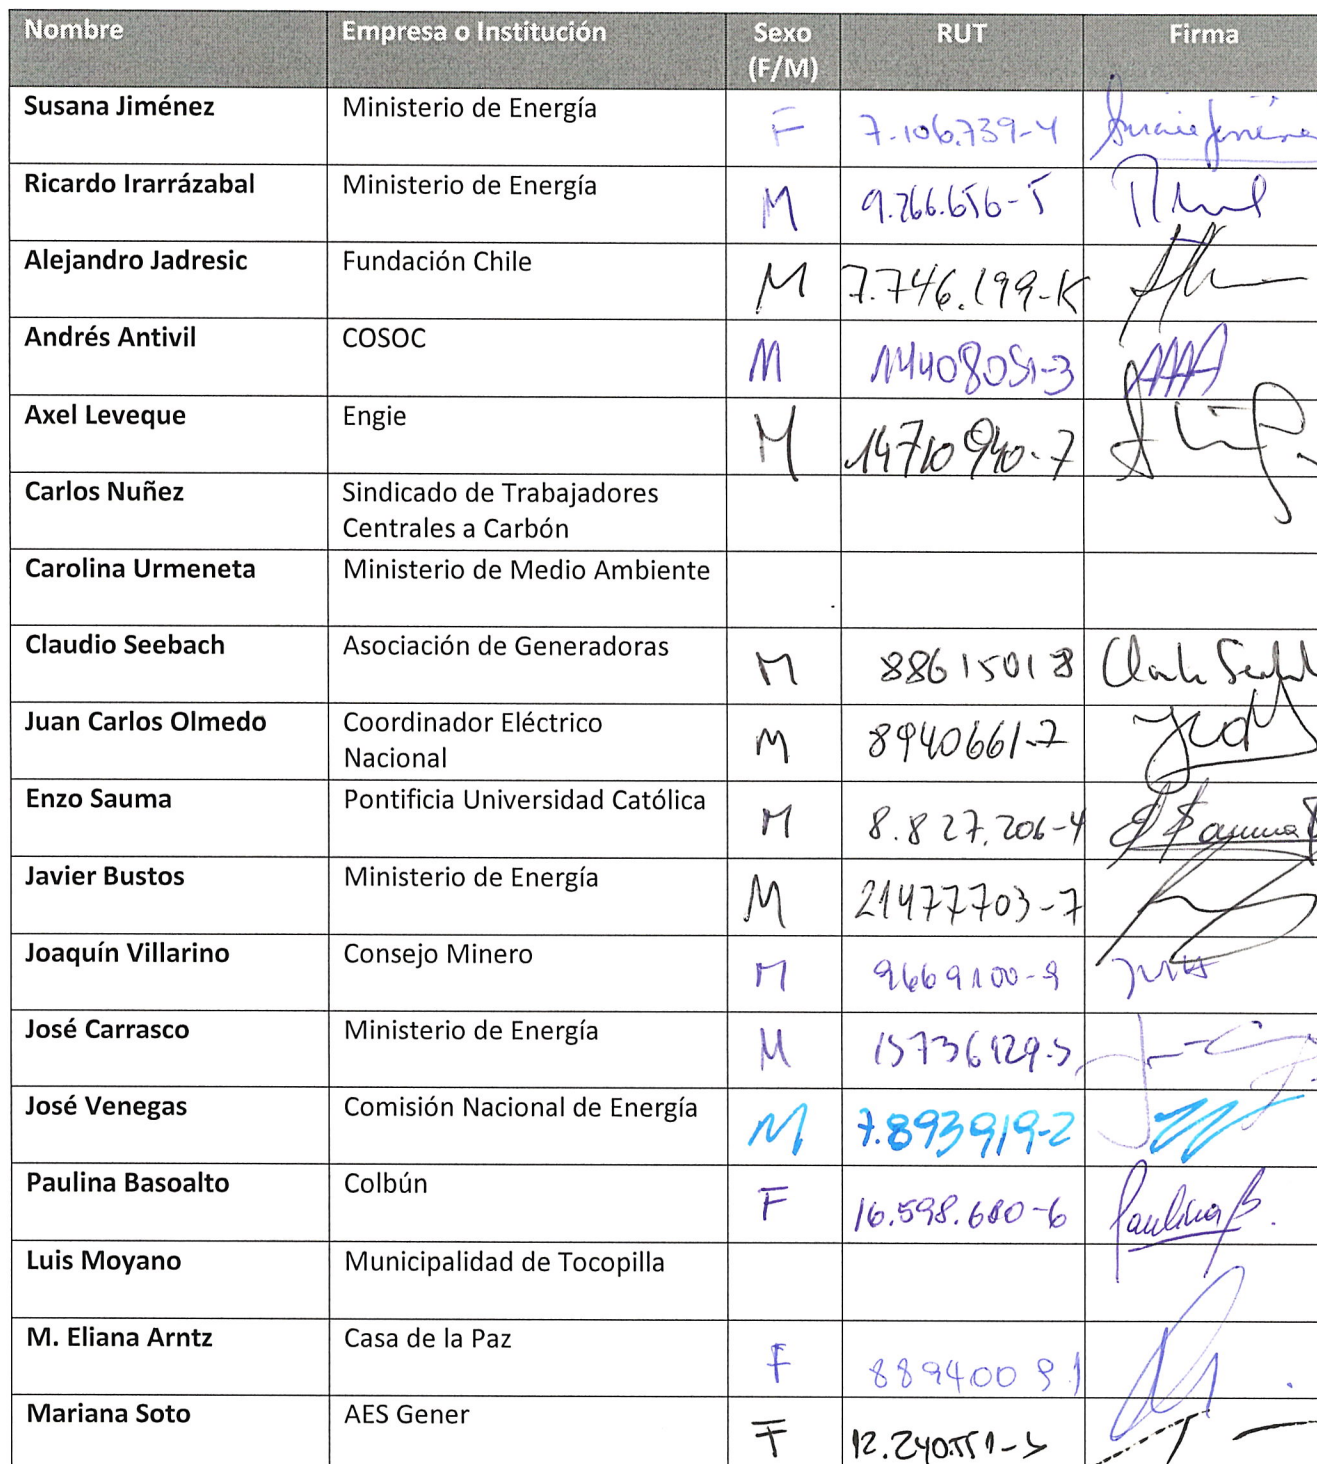 Nombre Empresa o Institución Sexo (F/M) RUT Firma
Susana Jiménez Ministerio de Energía F 7.106.739-4
Ricardo Irarrázabal Ministerio de Energía M 9.266.656-5
Alejandro Jadresic Fundación Chile M 7.746.199-K
Andrés Antivil COSOC M 14408051-3
Axel Leveque Engie M 14710940-7
Carlos Nuñez Sindicado de Trabajadores
Centrales a Carbón
Carolina Urmeneta Ministerio de Medio Ambiente
Claudio Seebach Asociación de Generadoras M 88615018
Juan Carlos Olmedo Coordinador Eléctrico M 8940661-7
Nacional
Enzo Sauma Pontificia Universidad Católica M 8.827.206-4
Javier Bustos Ministerio de Energía M 21477703-7
Joaquín Villarino Consejo Minero M 9669100-9
José Carrasco Ministerio de Energía M 15736129-5
José Venegas Comisión Nacional de Energía M 7.893919-2
Paulina Basoalto Colbún F 16.598.680-6 Paulina B.
Luis Moyano Municipalidad de Tocopilla
M. Eliana Arntz Casa de la Paz F 8894009.1
Mariana Soto AES Gener F